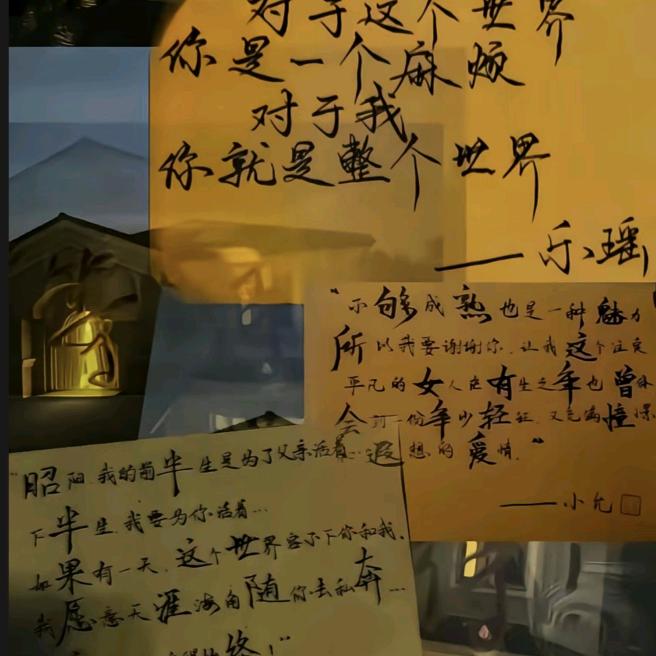 对于这个世界
你是一个麻烦
对于我
你就是整个世界
——乐瑶
"不够成熟也是一种魅力
所以我要谢谢你.让我这个注定
平凡的女人在有生之年也曾体
会到一份年少轻狂.又充满憧憬
遐想的爱情."
——小允
"昭阳.我的前半生是为了父亲活着...
下半生.我要为你活着...
如果有一天.这个世界容不下你和我.
我愿意天涯海角随你去私奔...
终!"